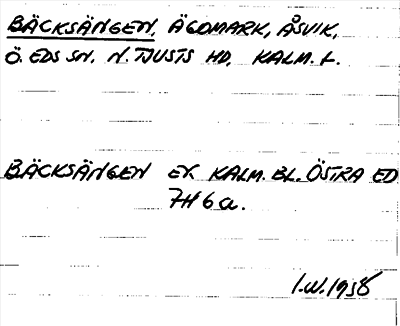 BÄCKSÄNGEN, ÄGOMARK, ÅSVIK,
Ö. EDS SN. N. TJUSTS HD. KALM. L.
BÄCKSÄNGEN EK KALM. BL. ÖSTRA ED
7H 6a.
I.W. 1958